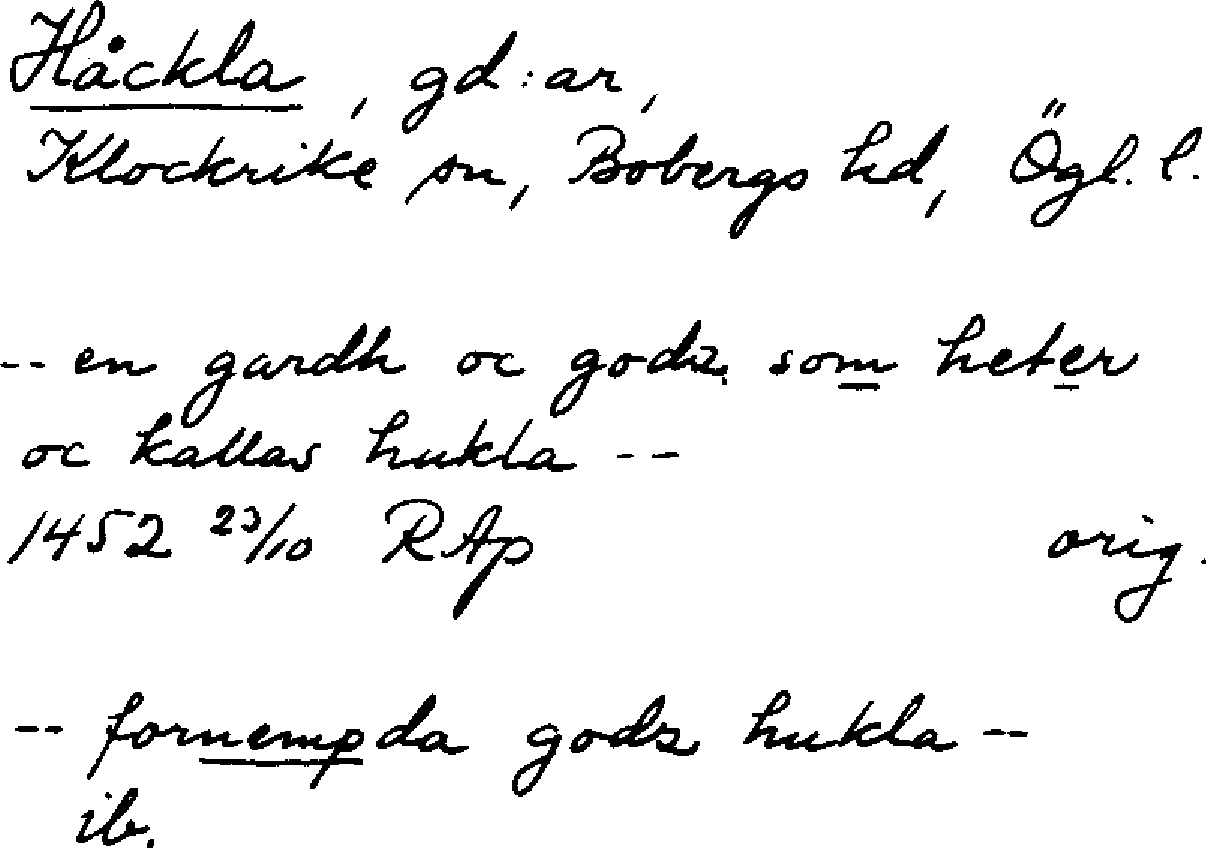 Håckla, gd:ar,
Klockrike sn, Bobergs hd, Ögl. l.
-- en gardh oc godz som heter
oc kallas hukla --
1452 23/10 RAp orig.
-- fornempda godz hukla --
ib.